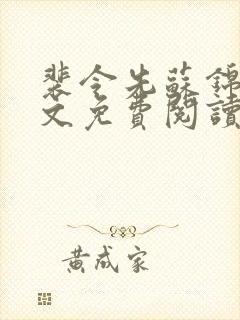 裴令先蘇錦
文免費閱讀
黃成家